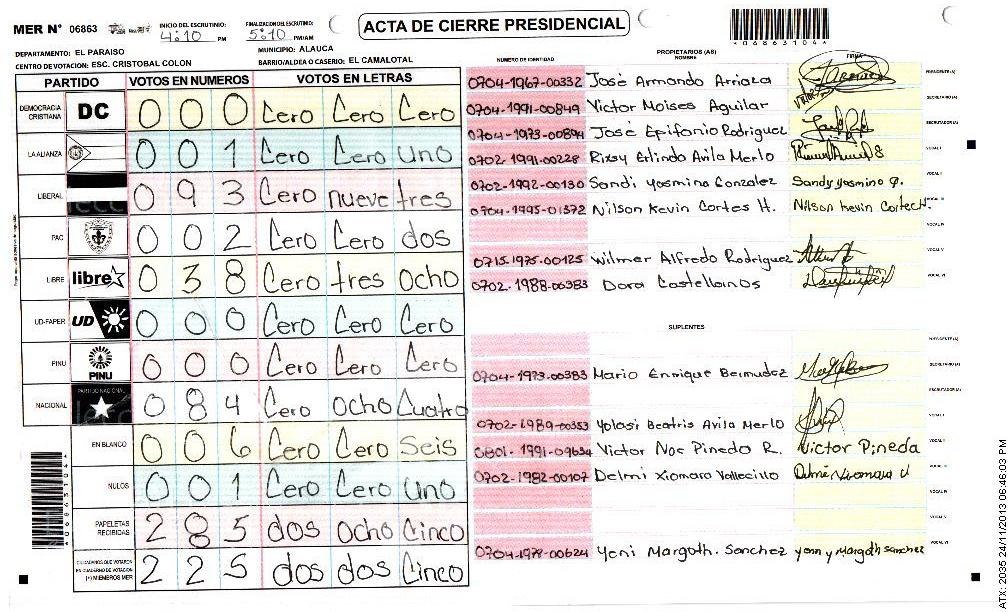 ACTA DE CIERRE PRESIDENCIAL
*06863104*
MER N° 06863
INICIO DEL ESCRUTINIO: 4:10 PM
FINALIZACION DEL ESCRUTINIO: 5:10 PM/AM
DEPARTAMENTO: EL PARAISO
MUNICIPIO: ALAUCA
CENTRO DE VOTACION: ESC. CRISTOBAL COLON
BARRIO/ALDEA O CASERIO: EL CAMALOTAL
PARTIDO VOTOS EN NUMEROS VOTOS EN LETRAS
DEMOCRACIA CRISTIANA DC 0 0 0 Cero Cero Cero
LA ALIANZA 0 0 1 Cero Cero uno
LIBERAL 0 9 3 Cero nueve tres
PAC 0 0 2 Cero Cero dos
LIBRE libre 0 3 8 Cero tres ocho
UD-FAPER UD 0 0 0 Cero Cero Cero
PINU PINU 0 0 0 Cero Cero Cero
NACIONAL PARTIDO NACIONAL 0 8 4 Cero ocho Cuatro
EN BLANCO 0 0 6 Cero Cero seis
NULOS 0 0 1 Cero Cero uno
PAPELETAS RECIBIDAS 2 8 5 dos ocho Cinco
CIUDADANOS QUE VOTARON EN CUADERNO DE VOTACION (+) MIEMBROS MER 2 2 5 dos dos Cinco
PROPIETARIOS (AS)
NUMERO DE IDENTIDAD NOMBRE FIRMA
0704-1967-00332 José Armando Arriaza PRESIDENTE (A)
0704-1991-00849 Victor Moises Aguilar SECRETARIO (A)
0704-1973-00894 José Epifonio Rodriguez ESCRUTADOR (A)
0702-1991-00228 Rixsy Erlindo Avila Merlo VOCAL I
0702-1992-00130 Sandi Yosmina Gonzalez Sandy Yosmino g. VOCAL II
0704-1995-01372 Nilson Kevin Cortes H. Nilson Kevin Cortes H. VOCAL III
VOCAL IV
0715-1975-00125 Wilmer Alfredo Rodriguez VOCAL V
0702-1988-00383 Dora Castellanos VOCAL VI
SUPLENTES
PRESIDENTE (A)
0704-1973-00383 Mario Enrique Bermudez SECRETARIO (A)
ESCRUTADOR (A)
0702-1989-00353 Yolosi Beatris Avila Merlo VOCAL I
0801-1991-09634 Victor Noe Pinedo R. Victor Pineda VOCAL II
0702-1982-00107 Delmi Xiomara Vallecillo VOCAL III
VOCAL IV
VOCAL V
0704-1978-00624 Yeni Margoth. Sanchez yenn y Margoth sanchez VOCAL VI
*06863104*
ATX: 2035 24/11/2013 06:46:03 PM